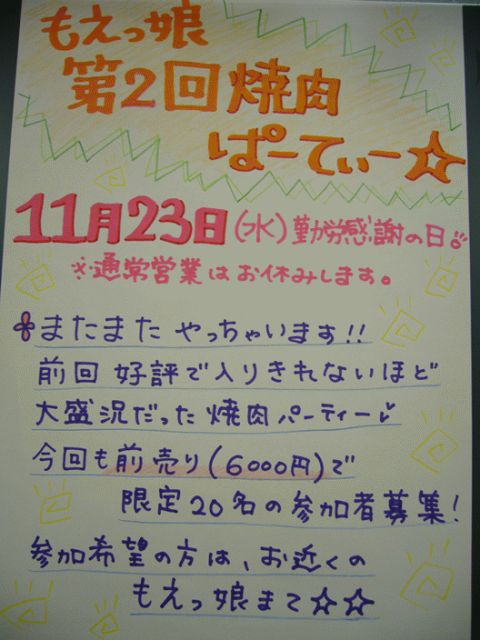 もえっ娘
第2回焼肉
ぱーてぃー☆
11月23日(水)勤労感謝の日♪
※通常営業はお休みします。
またまた やっちゃいます!!
前回 好評で入りきれないほど
大盛況だった 焼肉パーティー♪
今回も前売り(6000円)で
限定20名の参加者募集!
参加希望の方は、お近くの
もえっ娘まで☆☆